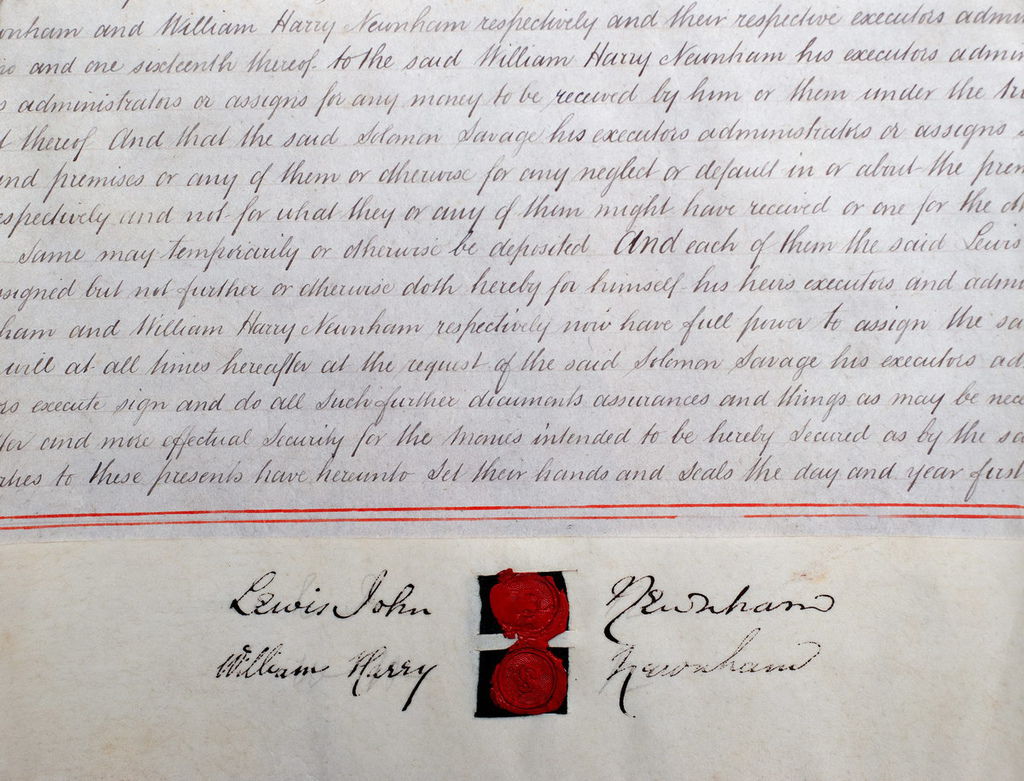 nham and William Harry Newnham respectively and their respective executors admin
and one sixteenth thereof to the said William Harry Newnham his executors admin
s administrators or assigns for any money to be received by him or them under the tru
t thereof And that the said Solomon Savage his executors administrators or assigns s
and premises or any of them or otherwise for any neglect or default in or about the prem
espectively and not for what they or any of them might have received or one for the oth
same may temporarily or otherwise be deposited And each of them the said Lewis
ssigned but not further or otherwise doth hereby for himself his heirs executors and admi
ham and William Harry Newnham respectively now have full power to assign the sa
will at all times hereafter at the request of the said Solomon Savage his executors ad
rs execute sign and do all such further documents assurances and things as may be nece
tter and more effectual security for the monies intended to be hereby secured as by the sa
rties to these presents have hereunto set their hands and seals the day and year first
Lewis John Newnham
William Harry Newnham